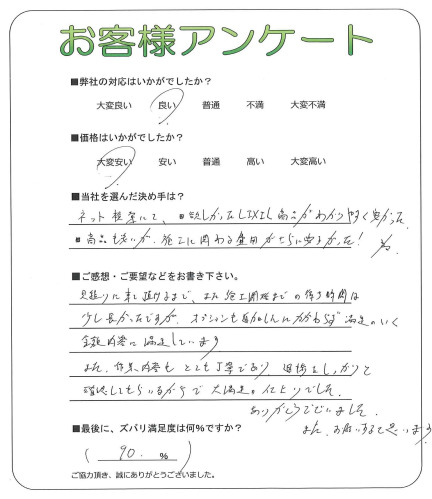 お客様アンケート
■弊社の対応はいかがでしたか?
大変良い 良い 普通 不満 大変不満
■価格はいかがでしたか?
大変安い 安い 普通 高い 大変高い
■当社を選んだ決め手は?
ネット検索にて、欲しかったLIXIL商品がわかりやすく安かった
商品も安いが、施工に関わる費用がさらに安かった! 為
■ご感想・ご要望などをお書き下さい。
見積りに来て頂けるまで、また施工開始までの待ち時間は
少し長かったですが、オプションも追加したにもかかわらず満足のいく
金額内容に満足しています
また、作業内容もとても丁寧であり、しっかりと
確認してもらいながらで大満足の仕上りでした。
ありがとうございました。
また、お願いすると思います
■最後に、ズバリ満足度は何%ですか?
( 90. % )
ご協力頂き、誠にありがとうございました。